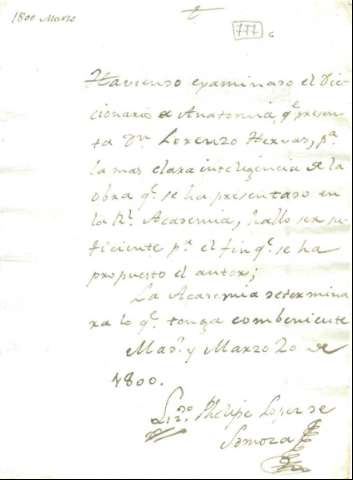 1800 Marzo
777
Haviendo examinado el Dic-
cionario de Anatomia q.e presen-
ta D.n Lorenzo Hervas, p.a
la mas clara inteligencia de la
obra q.e se ha presentado en
la R.l Academia, hallo ser su-
ficiente p.a el fin q.e se ha
propuesto el autor;
La Academia determina
ra lo q.e tenga combeniente
Mad.d y Marzo 20 de
1800.
Liz.do Phelipe Lopez de
Somoza